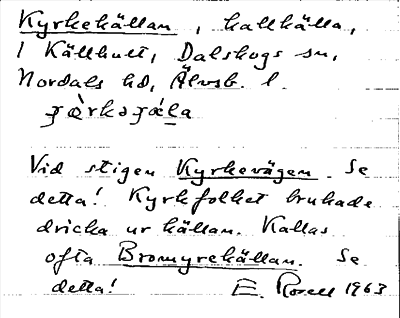 Kyrkekällan, kallkälla,
i Källhult, Dalskogs sn,
Nordals hd, Älvsb. l.
Vid stigen Kyrkevägen. Se
detta! Kyrkfolket brukade
dricka ur källan. Kallas
ofta Bromyrekällan. Se
detta! E. Rosell 1963